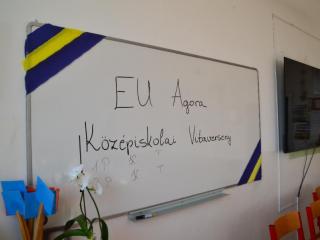 EU Agora
Középiskolai Vitaverseny